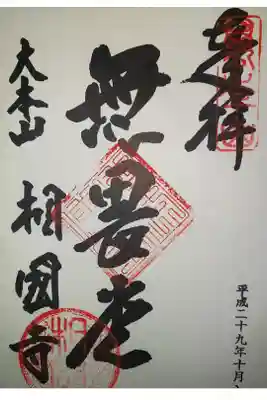 奉拝
無畏堂
大本山 相國寺
平成二十九年十月